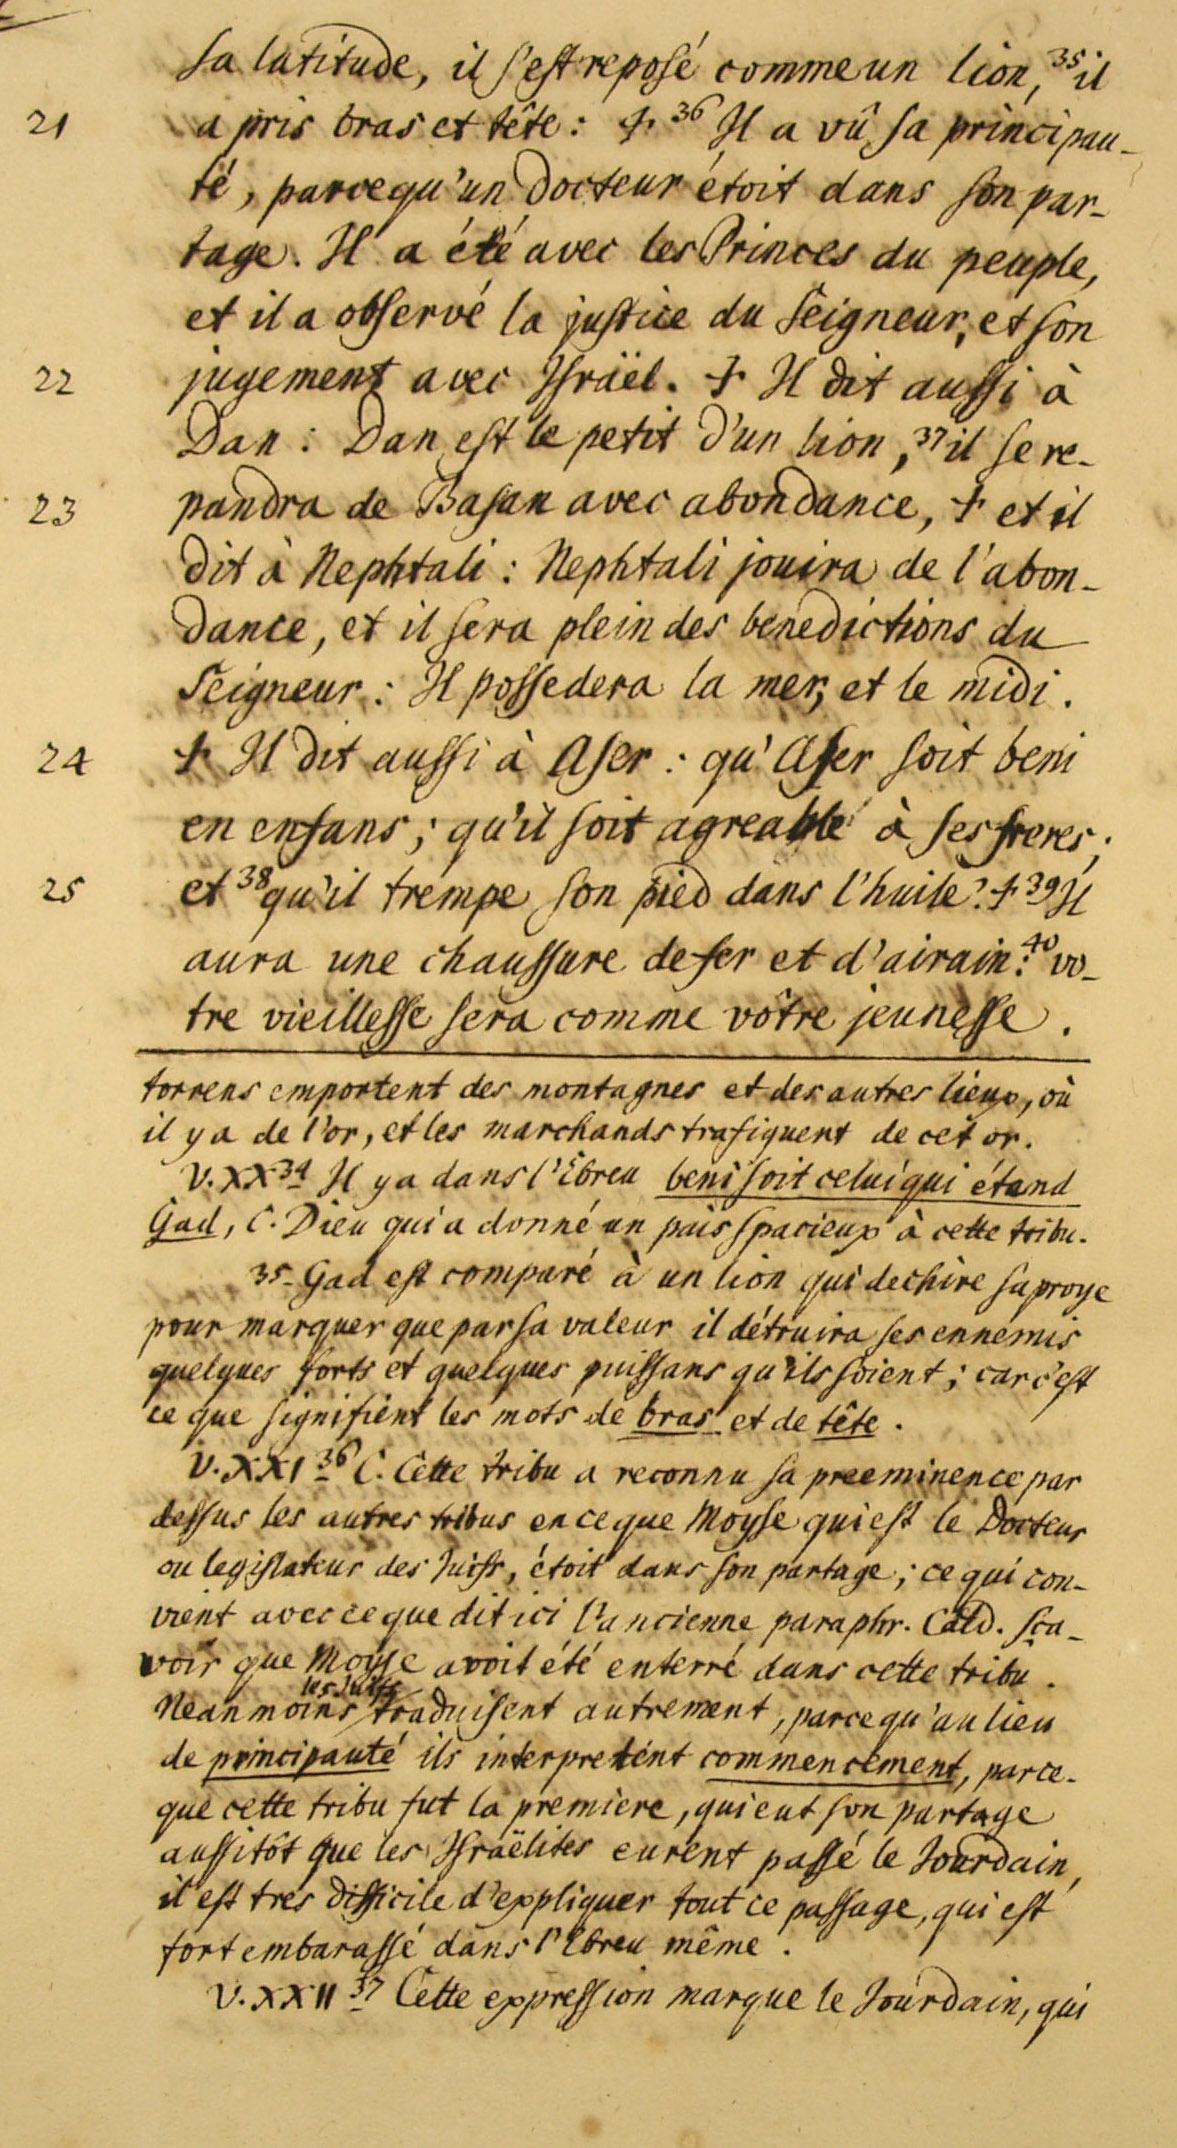 sa latitude, il s'est reposé comme un lion, 35 il
21 a pris bras et tête : + 36 Il a vû sa principau-
té, parcequ'un Docteur étoit dans son par-
tage. Il a été avec les Princes du peuple,
et il a observé la justice du Seigneur, et son
22 jugement avec Israël. + Il dit aussi à
Dan : Dan est le petit d'un lion, 37 il se re-
23 pandra de Basan avec abondance, + et il
dit à Nephtali : Nephtali jouira de l'abon-
dance, et il sera plein des benedictions du
Seigneur : Il possedera la mer, et le midi.
24 + Il dit aussi à Aser : qu'Aser soit beni
en enfans ; qu'il soit agreable à ses freres ;
25 et 38 qu'il trempe son pied dans l'huile. + 39 Il
aura une chaussure de fer et d'airain : 40 vo-
tre vieillesse sera comme vôtre jeunesse.
torrens emportent des montagnes et des autres lieux, où
il y a de l'or, et les marchands trafiquent de cet or.
V. XX 34 Il y a dans l'Ebreu beni soit celui qui étand
Gad, C. Dieu qui a donné un païs spacieux à cette tribu.
35 Gad est comparé à un lion qui dechire sa proye
pour marquer que par sa valeur il détruira ses ennemis
quelques forts et quelques puissans qu'ils soient ; car c'est
ce que signifient les mots de bras et de tête.
V. XXI 36 C. Cette tribu a reconnu sa preeminence par
dessus les autres tribus en ce que Moyse qui est le Docteur
ou legislateur des Juifs, étoit dans son partage ; ce qui con-
vient avec ce que dit ici l'ancienne paraphr. Cald. sça-
voir que Moyse avoit été enterré dans cette tribu.
Neanmoins les Juifs traduisent autrement, parcequ'au lieu
de principauté ils interpretent commencement, parce-
que cette tribu fut la premiere, qui eut son partage
aussitôt que les Israëlites eurent passé le Jourdain,
il est tres difficile d'expliquer tout ce passage, qui est
fort embarassé dans l'Ebreu même.
V. XXII 37 Cette expression marque le Jourdain, qui